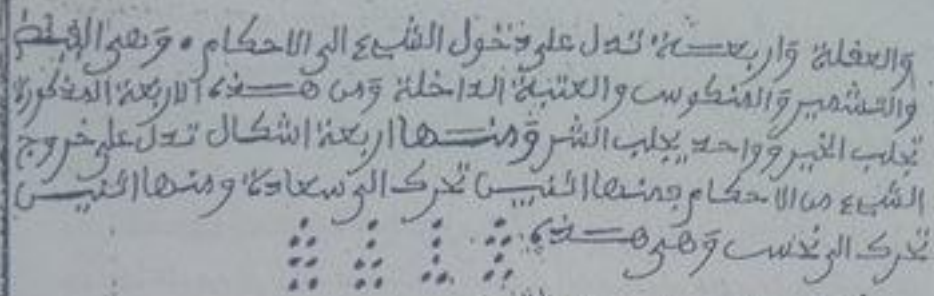 والعفلة واربعة تدل على دخول الشيء الى الاحكام • وهى القبض
والتشمير والمنكوس والعتبة الداخلة ومن هذه الاربعة المذكورة
تجلب الخير وواحد يجلب الشر ومنها اربعة اشكال تدل على خروج
الشيء من الاحكام فمنها اثنين تحرك الى سعادة ومنها اثنين
تحرك الى نحس وهى هذه